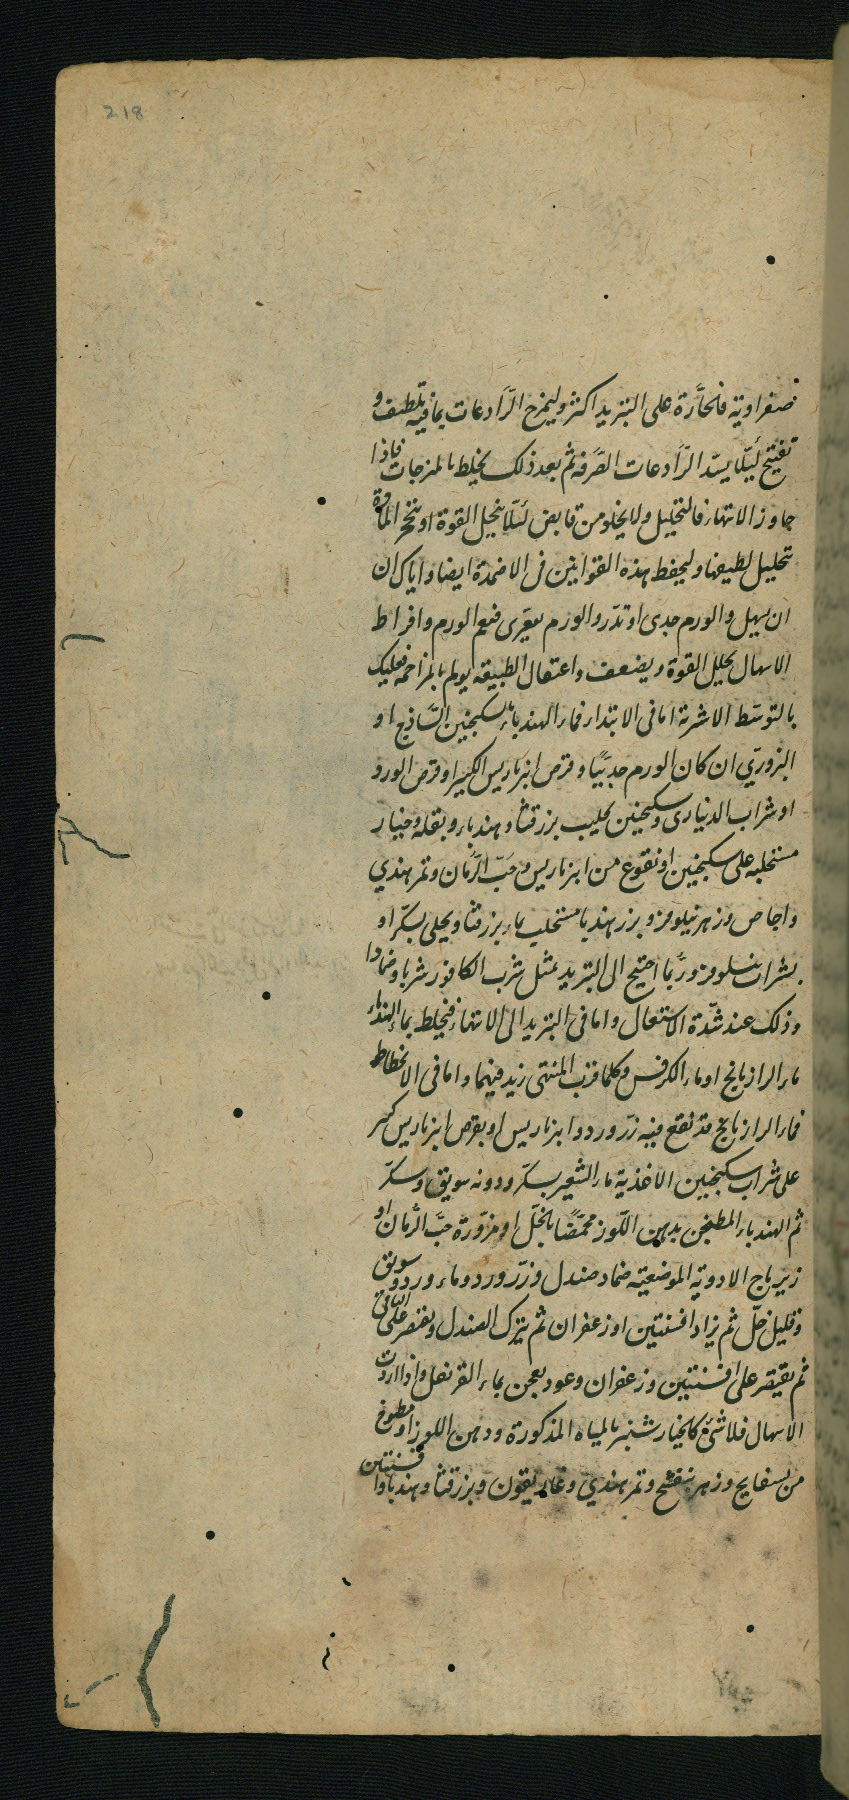 218
صفراوية فلتجارة على التبريد اكثر وليمزج الرّادعات بما فيه تلطيف و
تفتيح لئلّا يسدّ الرّادعات الصّرفه ثم بعد ذلك يخلط بالمرخيات فاذا
جاوز الانتهاء فالتحليل ولا يخلو من قابض لئلّا ينحل القوة او يتحجر المادة
بتحليل لطيفها وليحفظ هذه القوانين فى الاضمدة ايضا واياك ان
ان يسهل والورم حدبى او تدرّ والورم مقعرى فيعم الورم وافراط
الاسهال يحلل القوة ويضعف واعتقال الطبيعه يولم بالمزاحمه فعليك
بالتوسّط الاشربة اما فى الابتداء فماء الهندباء بسكنجبين السّاذج او
البزورى ان كان الورم حدبيًا وقرص انبرباريس الكبير او قرص الورد
او شراب الدينارى وسكنجبين بحليب بزرقثا وهندباء وبقله وخيار
مستحلبه على سكنجبين او نقوع من انبرباريس وحبّ الرّمان وتمر هندي
واجاص وزهر نيلوفر وبزر هندبا مستحلب بماء بزرقثا ويحلى بسكّر او
بشراب نيلوفر وربّما احتيج الى التبريد بمثل شرب الكافور شربا وضمادا
وذلك عند شدّة الاشتعال واما فى التبريد الى الانتهاء فيخلط بماء الهندباء
ماء الرازيانج او ماء الكرفس وكلما قرب المنتهى زيد فيهما واما فى الانحطاط
فماء الرازيانج قد نقع فيه زرّ ورد وانبرباريس او بقرص انبرباريس كبير
على شراب سكنجبين الاغذية ماء الشعير بسكّر ودونه سويق وسكّر
ثم الهندباء المطجن بدهن اللّوز محمّضًا بالخلّ او مزوّرة حبّ الرّمان او
زيرباج الادوية الموضعيّه ضماد صندل وزرّ ورد وماء ورد وسويق
وقليل خلّ ثم يزاد افسنتين او زعفران ثم يترك الصندل ويقتصر على الباقى
ثم يقتصر على افسنتين وزعفران وعود يعجن بماء القرنفل واذا اردت
الاسهال فلا شئ كالخيارشنبر بالمياه المذكورة ودهن اللوز او مطبوخ
من بسفايج وزهر بنفسج وتمر هندي وغاريقون وبزرقثا وهندبا وافسنتين